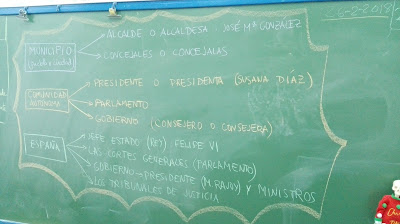 26-2-2018
ALCALDE O ALCALDESA JOSÉ Mª GONZALEZ
MUNICIPIO
CONCEJALES O CONCEJALAS
PRESIDENTE O PRESIDENTA (SUSANA DÍAZ)
COMUNIDAD
AUTÓNOMA
PARLAMENTO
GOBIERNO (CONSEJERO O CONSEJERA)
JEFE ESTADO (REY) FELIPE VI
ESPAÑA
LAS CORTES GENERALES (PARLAMENTO)
GOBIERNO → PRESIDENTE (M. RAJOY) Y MINISTROS
LOS TRIBUNALES DE JUSTICIA